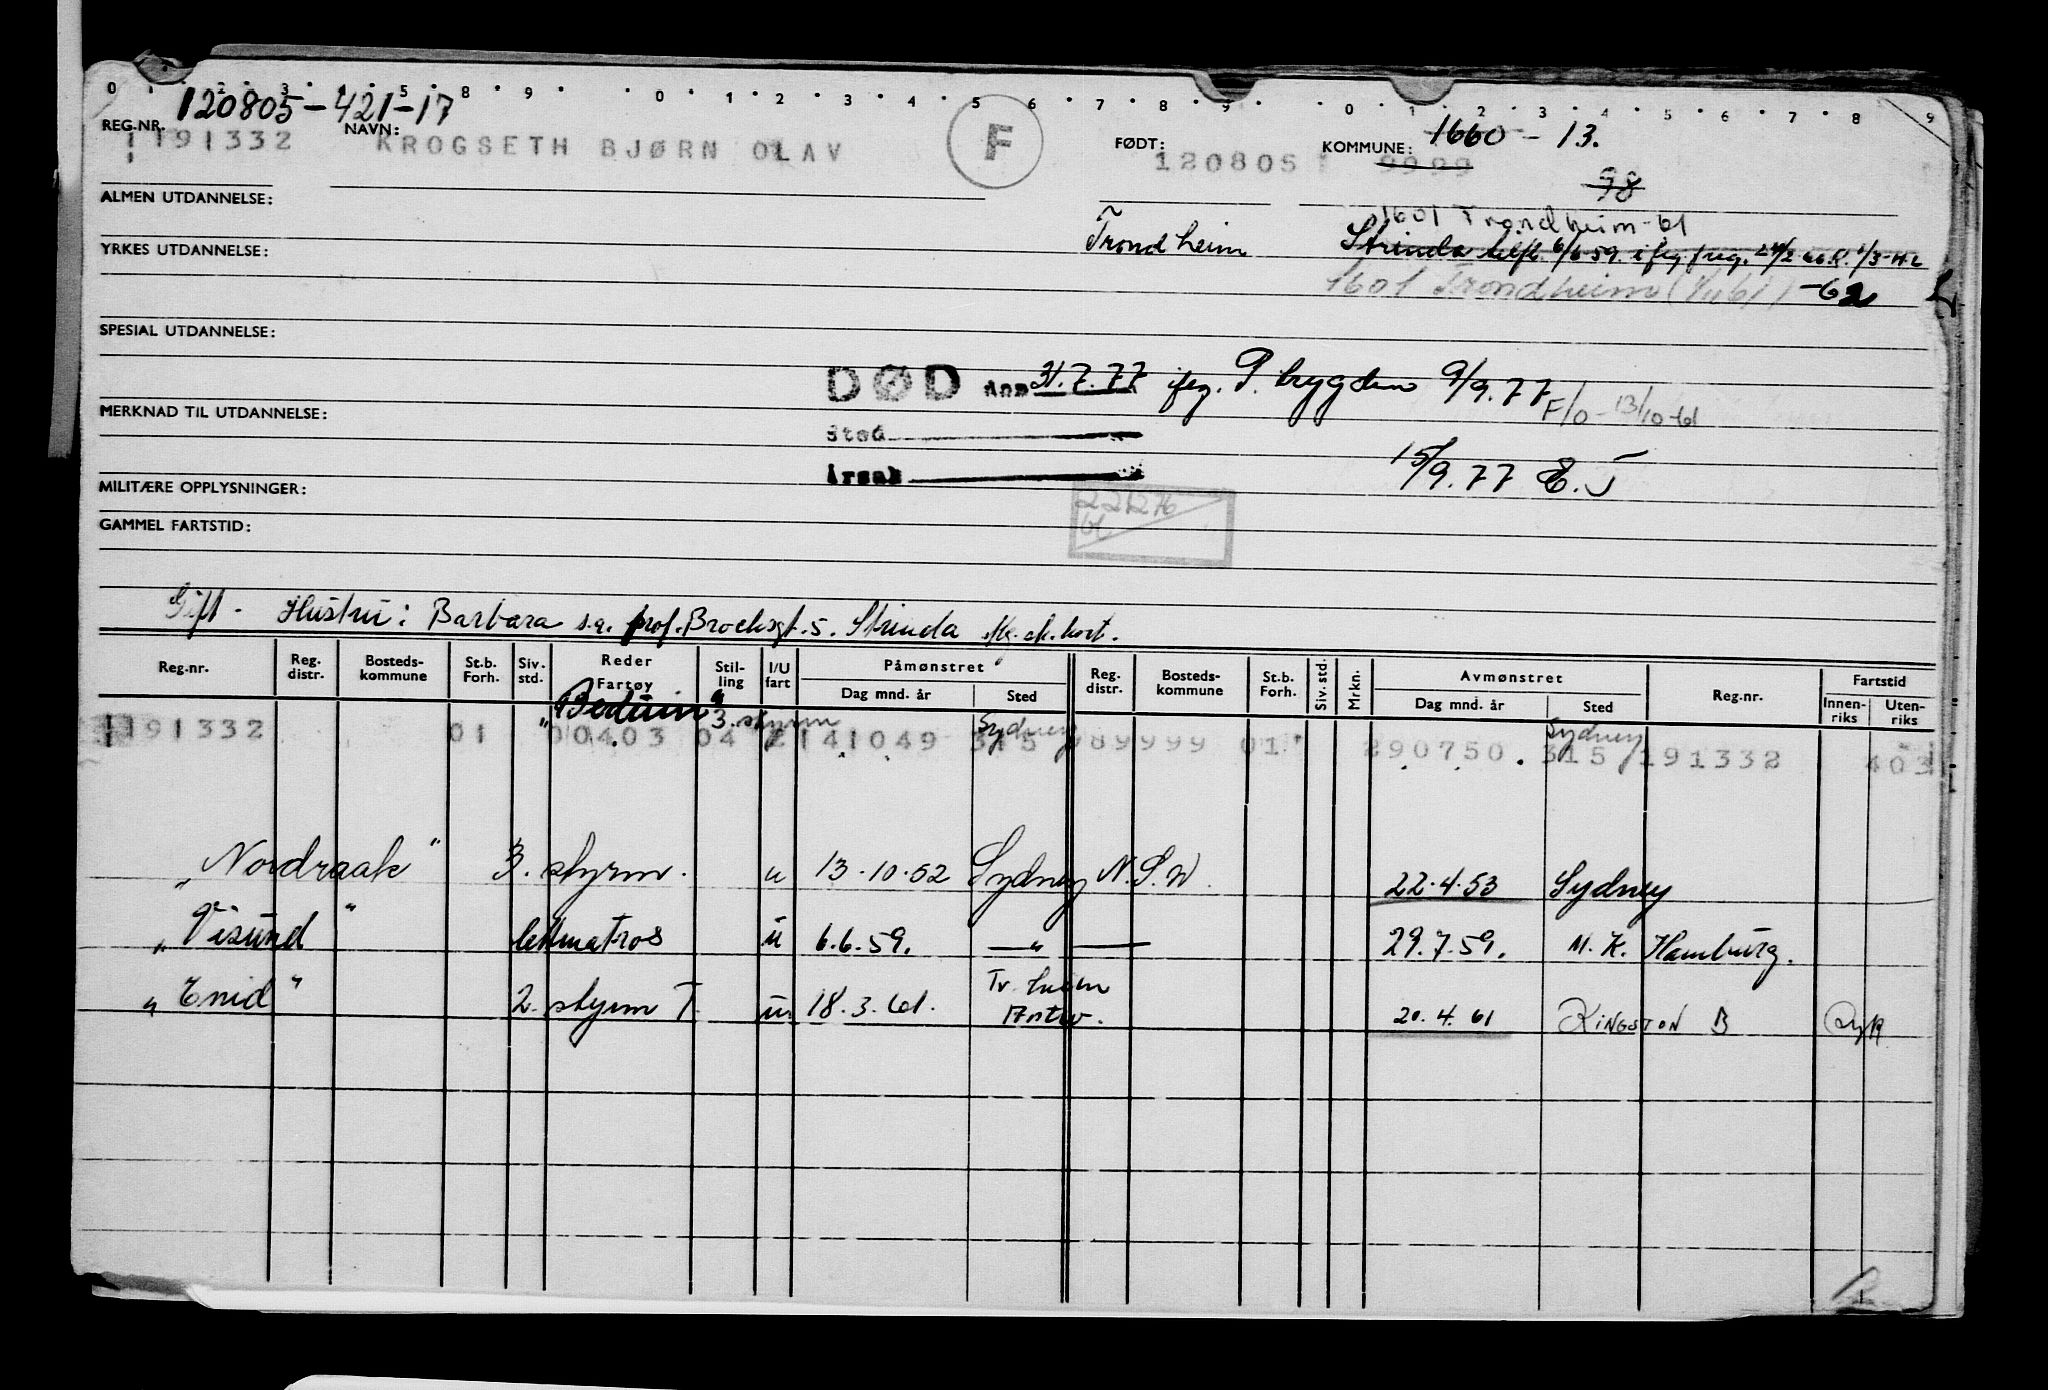 0 1 2 3 4 5 8 9 0 1 2 3 4 5 6 7 8 9 0 1 2 3 4 5 6 7 8 9
120805-421-17
REG.NR. 191332 NAVN: KROGSETH BJØRN OLAV F FØDT: 120805 KOMMUNE: 9999 1660-13.
98
ALMEN UTDANNELSE:
1601 Trondheim-61
YRKES UTDANNELSE: Trondheim Strinda 6/6-59
1601 Trondheim -62
SPESIAL UTDANNELSE:
DØD den 31.7.77 ifg. P. trygden 9/9.77 F/o-13/10-61
MERKNAD TIL UTDANNELSE:
Sted
Årsak 15/9.77 E.T
MILITÆRE OPPLYSNINGER:
221276
GAMMEL FARTSTID:
Gift - Hustru: Barbara s.a. prof. Brochsgt. 5. Strinda
Reg.nr. Reg. distr. Bosteds-kommune St.b. Forh. Siv. std. Reder Fartøy Stil-ling I/U fart Påmønstret Dag mnd. år Sted Reg. distr. Bosteds-kommune St.b. Forh. Siv. std. Mrkn. Avmønstret Dag mnd. år Sted Reg.nr. Fartstid Innen-riks Uten-riks
"Beduin" 3. styrm Sydney Sydney
191332 01 00403 04 2 141049 315 989999 01 290750 315 191332 403
"Nordraak" 3. styrm. u 13.10.52 Sydney N.S.W. 22.4.53 Sydney
"Visund" lettmatros u 6.6.59. — " — 29.7.59. M.K. Hamburg.
"Enid" 2. styrm T. u. 18.3.61. Tr.heim Antw. 20.4.61 KINGSTON B